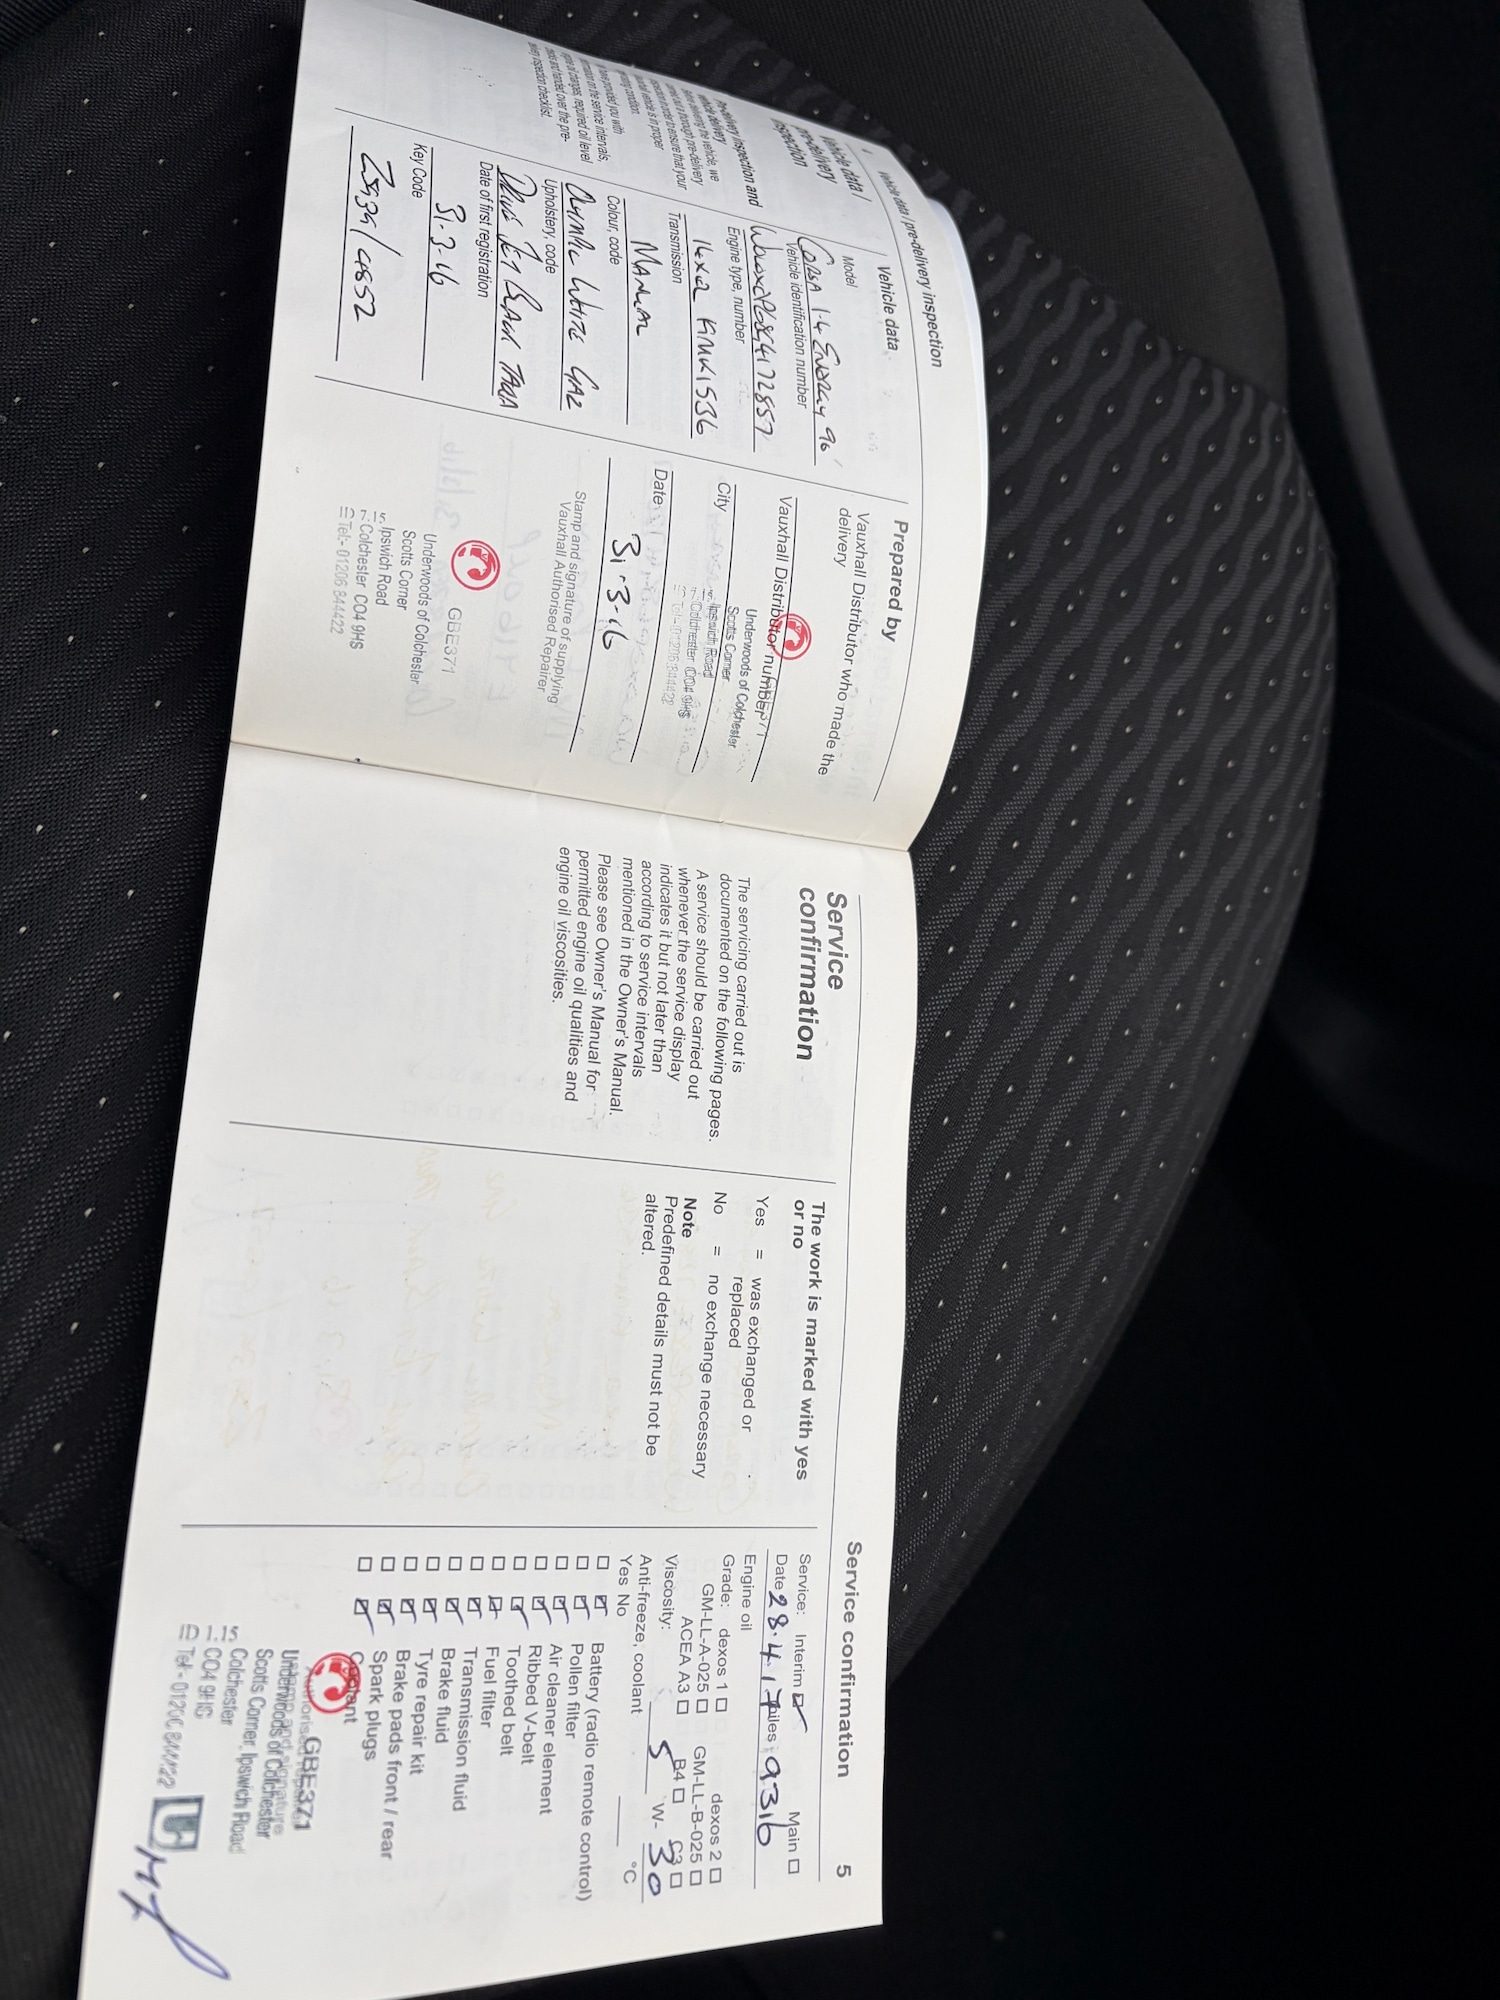 4 Vehicle data / pre-delivery inspection
Vehicle data /
pre-delivery
inspection
Pre-delivery inspection and
vehicle delivery
Before delivering the vehicle, we
carried out a thorough pre-delivery
inspection in order to ensure that your
vehicle is in proper
condition.
have provided you with
information on the service intervals,
engine oil changes, required oil level
and handed over the pre-
delivery inspection checklist.
Vehicle data
Model
CORSA 1.4 ENERGY 90
Vehicle identification number
Engine type, number
KMK1536
Transmission
MANUAL
Colour, code
OLYMPIC WHITE GAZ
Upholstery, code
JET BLACK
Date of first registration
31.3.16
Key Code
Prepared by
Vauxhall Distributor who made the
delivery
Vauxhall Distributor number
Underwoods of Colchester
Scotts Corner
Ipswich Road
Colchester CO4 9HS
Tel:- 01206 844422
City
Date
31.3.16
Stamp and signature of supplying
Vauxhall Authorised Repairer
GBE371
Underwoods of Colchester
Scotts Corner
Ipswich Road
Colchester CO4 9HS
Tel:- 01206 844422
Service confirmation 5
Service
confirmation
The servicing carried out is
documented on the following pages.
A service should be carried out
whenever the service display
indicates it but not later than
according to service intervals
mentioned in the Owner's Manual.
Please see Owner's Manual for
permitted engine oil qualities and
engine oil viscosities.
The work is marked with yes
or no
Yes = was exchanged or
replaced
No = no exchange necessary
Note
Predefined details must not be
altered.
Service: Interim ☑ Main ☐
Date 28.4.17 miles 9316
Engine oil
Grade: dexos 1 ☐ dexos 2 ☐
GM-LL-A-025 ☐ GM-LL-B-025 ☐
ACEA A3 ☐ B4 ☐ C3 ☐
Viscosity: 5 W- 30
Anti-freeze, coolant °C
Yes No
☐ ☑ Battery (radio remote control)
☐ ☑ Pollen filter
☐ ☑ Air cleaner element
☐ ☑ Ribbed V-belt
☐ ☑ Toothed belt
☐ ☑ Fuel filter
☐ ☑ Transmission fluid
☐ ☑ Brake fluid
☐ ☑ Tyre repair kit
☐ ☑ Brake pads front / rear
☐ ☑ Spark plugs
☐ ☑ Coolant
GBE371
Underwoods of Colchester
Scotts Corner, Ipswich Road
Colchester
CO4 9HS
ID 1.15 Tel:- 01206 844422